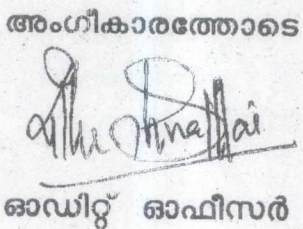 അംഗീകാരത്തോടെ
ഓഡിറ്റ് ഓഫീസർ